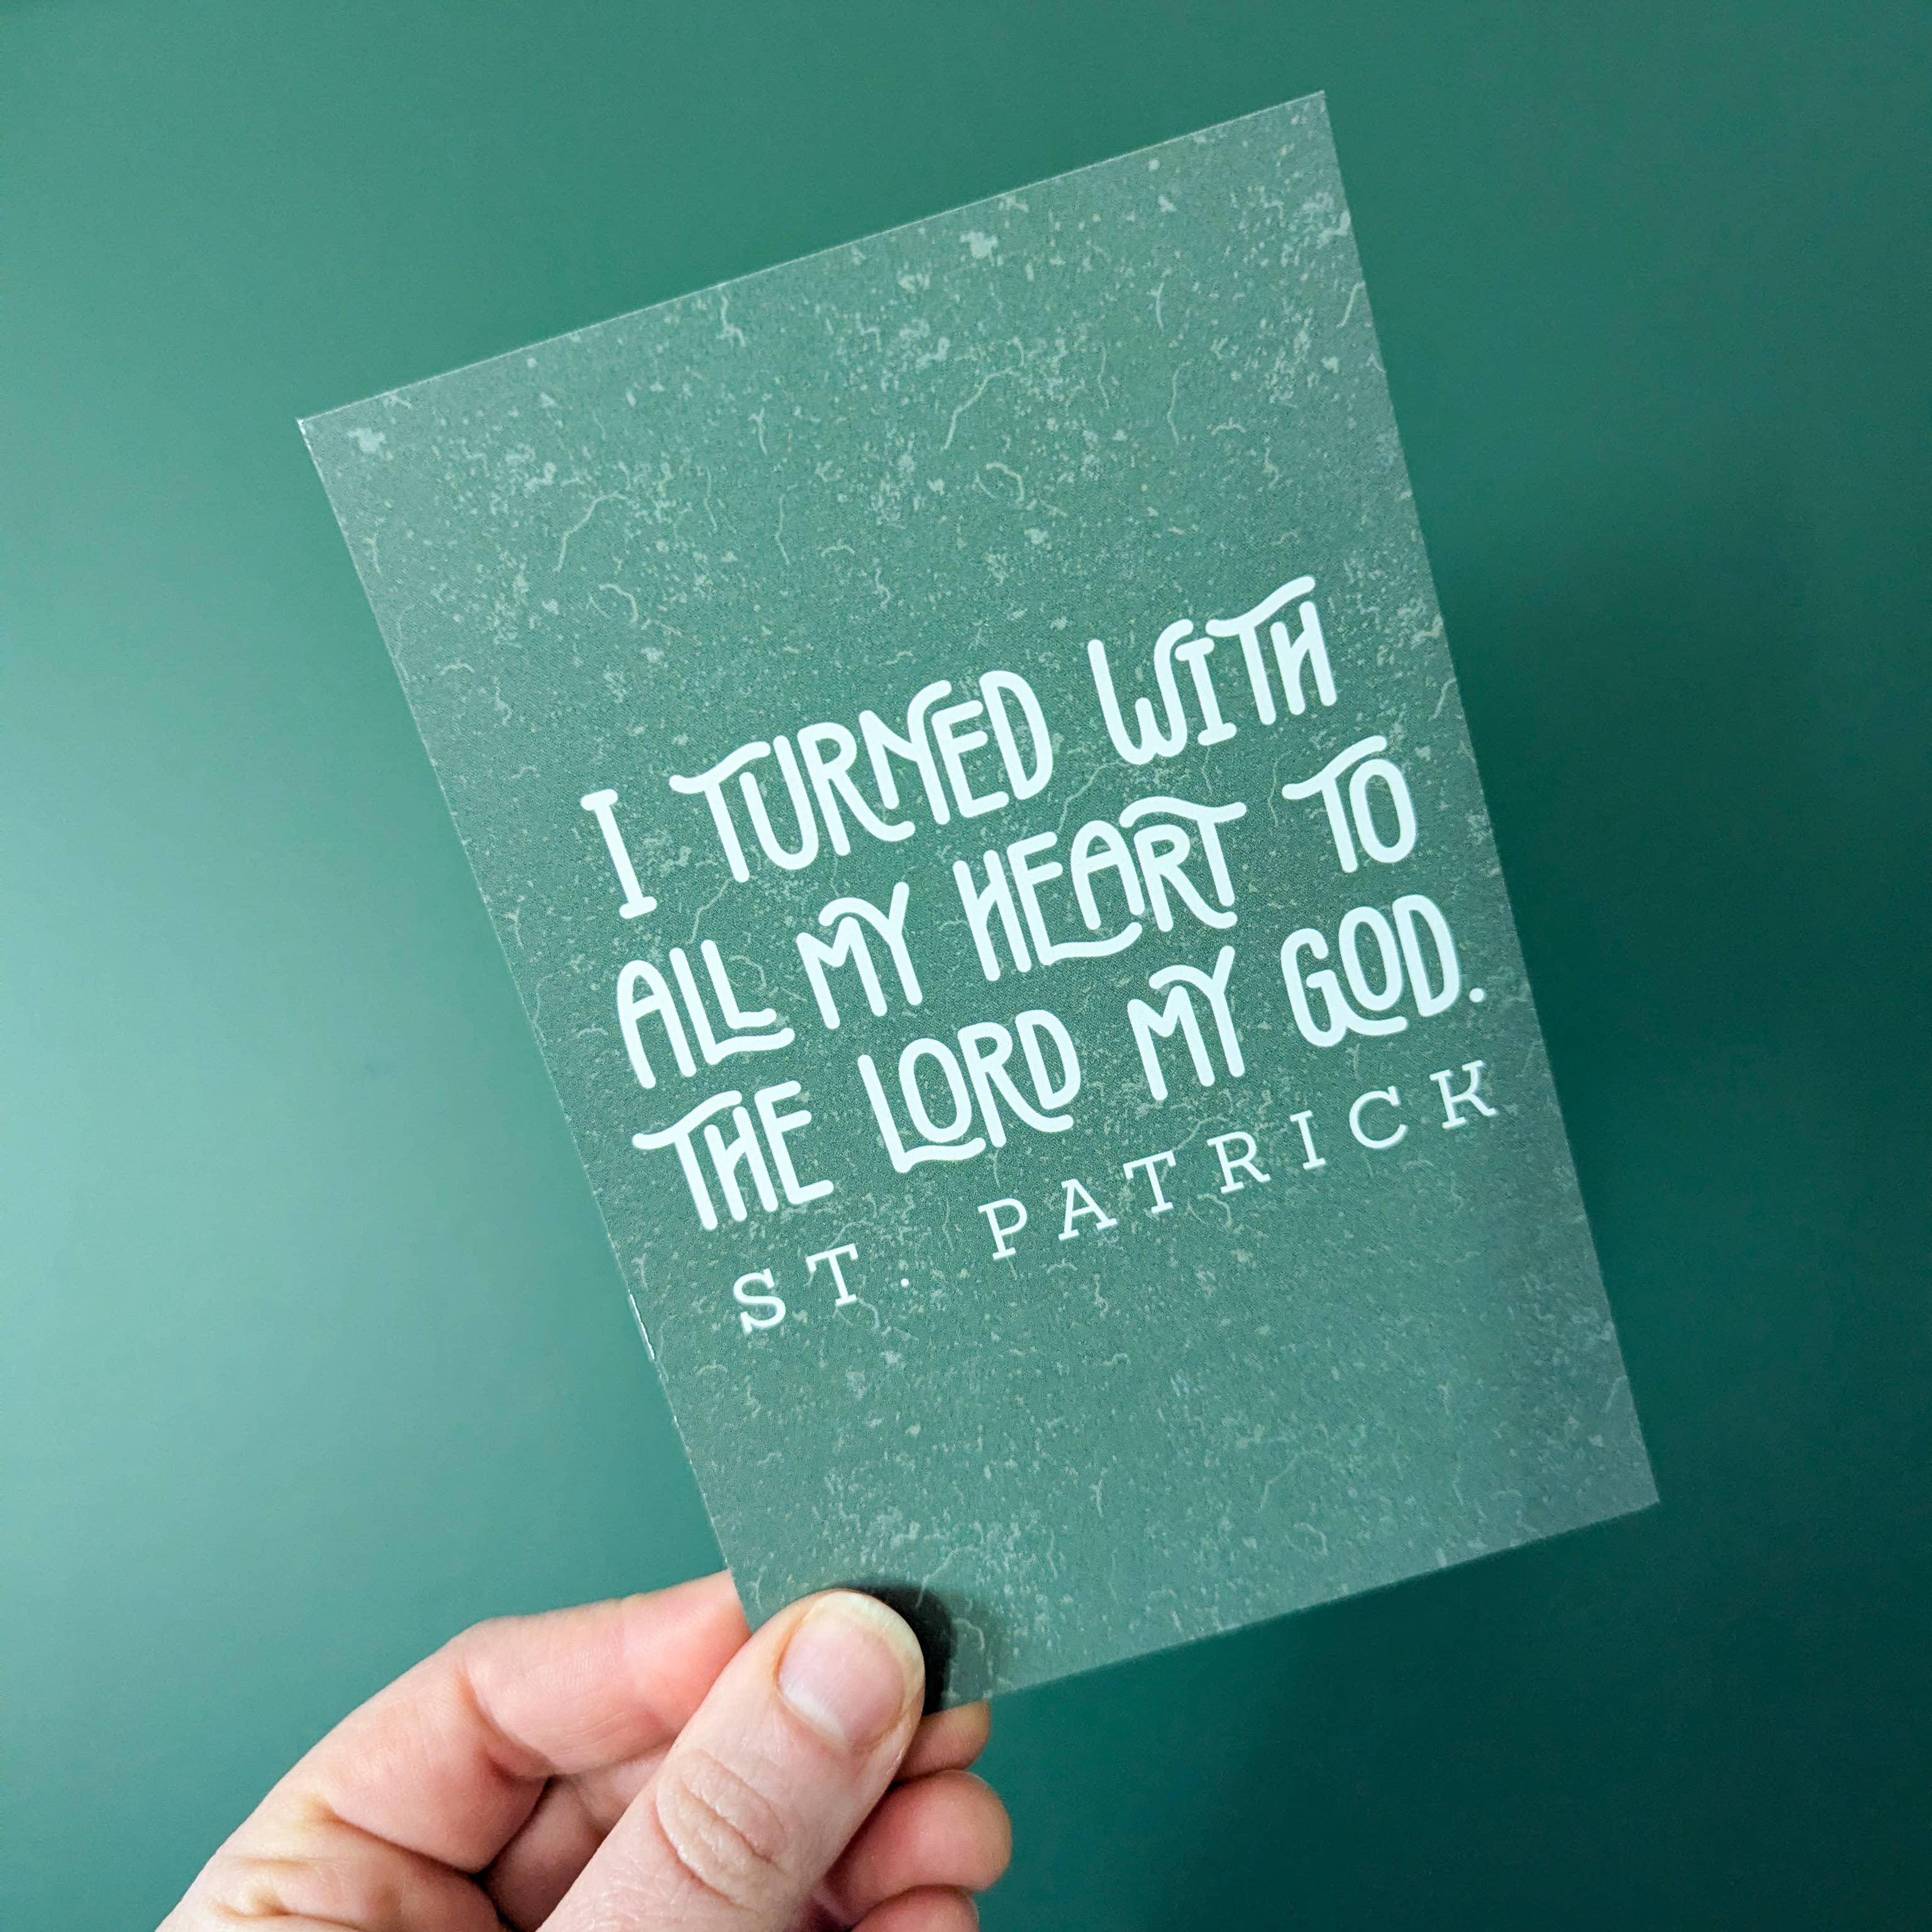 I TURNED WITH
ALL MY HEART TO
THE LORD MY GOD.
ST. PATRICK